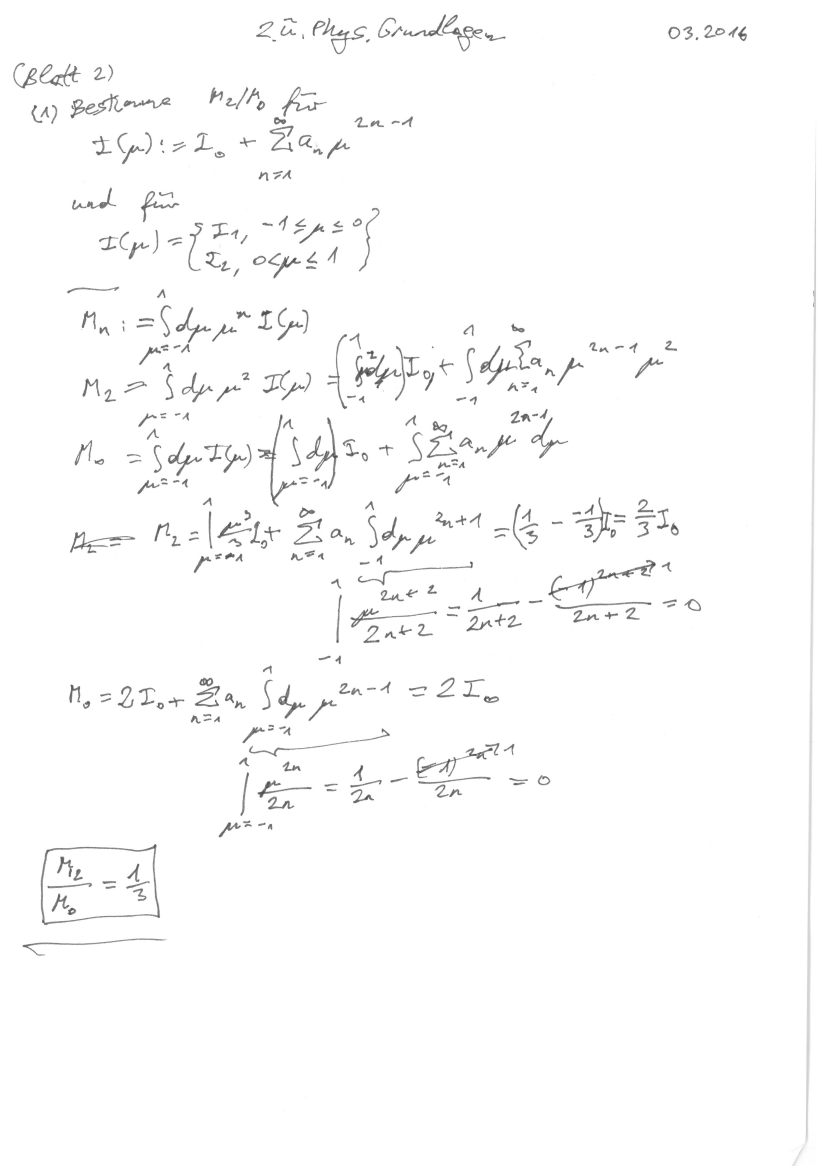 2. Ü. Phys. Grundlagen 03.2016
(Blatt 2)
(1) Bestimme M₂/M₀ für
I(μ) := I₀ + ∑_{n=1}^{∞} aₙ μ^{2n-1}
und für
I(μ) = { I₁, -1 ≤ μ ≤ 0
I₂, 0 < μ ≤ 1 }
Mₙ := ∫_{μ=-1}^{1} dμ μⁿ I(μ)
M₂ = ∫_{μ=-1}^{1} dμ μ² I(μ) = (∫_{-1}^{1} μ² dμ) I₀ + ∫_{-1}^{1} dμ ∑_{n=1}^{∞} aₙ μ^{2n-1} μ²
M₀ = ∫_{μ=-1}^{1} dμ I(μ) = (∫_{μ=-1}^{1} dμ) I₀ + ∫_{μ=-1}^{1} ∑_{n=1}^{∞} aₙ μ^{2n-1} dμ
M₂ = M₂ = |_{μ=-1}^{1} μ³/3 I₀ + ∑_{n=1}^{∞} aₙ ∫_{-1}^{1} dμ μ^{2n+1} = (1/3 - -1/3) I₀ = 2/3 I₀
|_{-1}^{1} μ^{2n+2}/(2n+2) = 1/(2n+2) - (-1)^{2n+2} 1/(2n+2) = 0
M₀ = 2I₀ + ∑_{n=1}^{∞} aₙ ∫_{μ=-1}^{1} dμ μ^{2n-1} = 2I₀
|_{μ=-1}^{1} μ^{2n}/2n = 1/2n - (-1)^{2n} 1/2n = 0
M₂/M₀ = 1/3